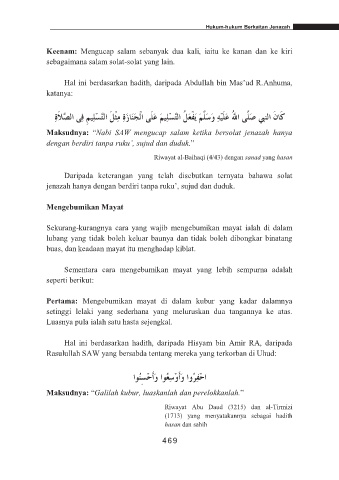 Hukum-hukum Berkaitan Jenazah
Keenam: Mengucap salam sebanyak dua kali, iaitu ke kanan dan ke kiri
sebagaimana salam solat-solat yang lain.
Hal ini berdasarkan hadith, daripada Abdullah bin Mas'ud R.Anhuma,
katanya:
كَانَ النبي صَلَّى اللهُ عَلَيْهِ وَسَلَّمَ يَفْعَلُ التَّسْلِيمَ عَلَى الْجَنَازَةِ مِثْلَ التَّسْلِيمِ فِى الصَّلَاةِ
Maksudnya: “Nabi SAW mengucap salam ketika bersolat jenazah hanya
dengan berdiri tanpa ruku’, sujud dan duduk.”
Riwayat al-Baihaqi (4/43) dengan sanad yang hasan
Daripada keterangan yang telah disebutkan ternyata bahawa solat
jenazah hanya dengan berdiri tanpa ruku’, sujud dan duduk.
Mengebumikan Mayat
Sekurang-kurangnya cara yang wajib mengebumikan mayat ialah di dalam
lubang yang tidak boleh keluar baunya dan tidak boleh dibongkar binatang
buas, dan keadaan mayat itu menghadap kiblat.
Sementara cara mengebumikan mayat yang lebih sempurna adalah
seperti berikut:
Pertama: Mengebumikan mayat di dalam kubur yang kadar dalamnya
setinggi lelaki yang sederhana yang meluruskan dua tangannya ke atas.
Luasnya pula ialah satu hasta sejengkal.
Hal ini berdasarkan hadith, daripada Hisyam bin Amir RA, daripada
Rasulullah SAW yang bersabda tentang mereka yang terkorban di Uhud:
احْفِرُوا وَأَوْسِعُوا وَأَحْسِنُوا
Maksudnya: “Galilah kubur, luaskanlah dan perelokkanlah.”
Riwayat Abu Daud (3215) dan al-Tirmizi
(1713) yang menyatakannya sebagai hadith
hasan dan sahih
469